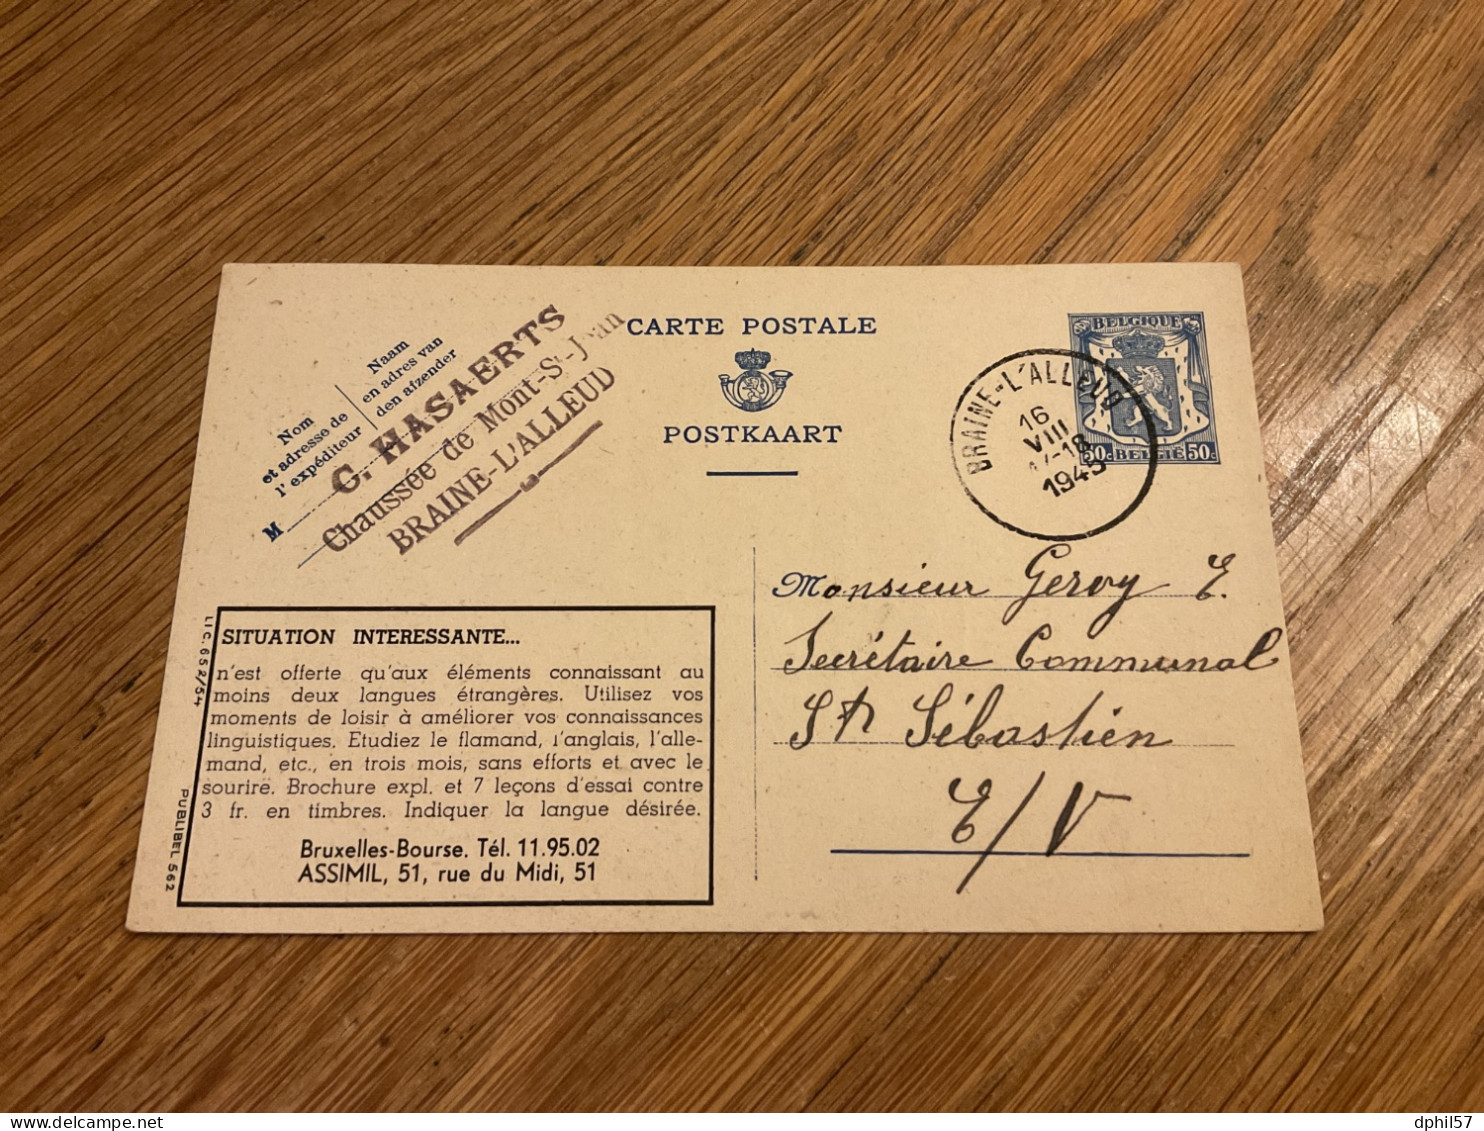 Nom
et adresse de
l'expéditeur
Naam
en adres van
den afzender
M
G. HASAERTS
Chaussée de Mont-St-Jean
BRAINE-L'ALLEUD
CARTE POSTALE
POSTKAART
BELGIQUE
50c BELGIË 50c
BRAINE-L'ALLEUD
16
VIII
17-18
1945
Monsieur Geroy E.
Secrétaire Communal
St Sébastien
E/V
LIC. 652/54
PUBLIBEL 562
SITUATION INTERESSANTE...
n'est offerte qu'aux éléments connaissant au
moins deux langues étrangères. Utilisez vos
moments de loisir à améliorer vos connaissances
linguistiques. Etudiez le flamand, l'anglais, l'alle-
mand, etc., en trois mois, sans efforts et avec le
sourire. Brochure expl. et 7 leçons d'essai contre
3 fr. en timbres. Indiquer la langue désirée.
Bruxelles-Bourse. Tél. 11.95.02
ASSIMIL, 51, rue du Midi, 51
dphil57